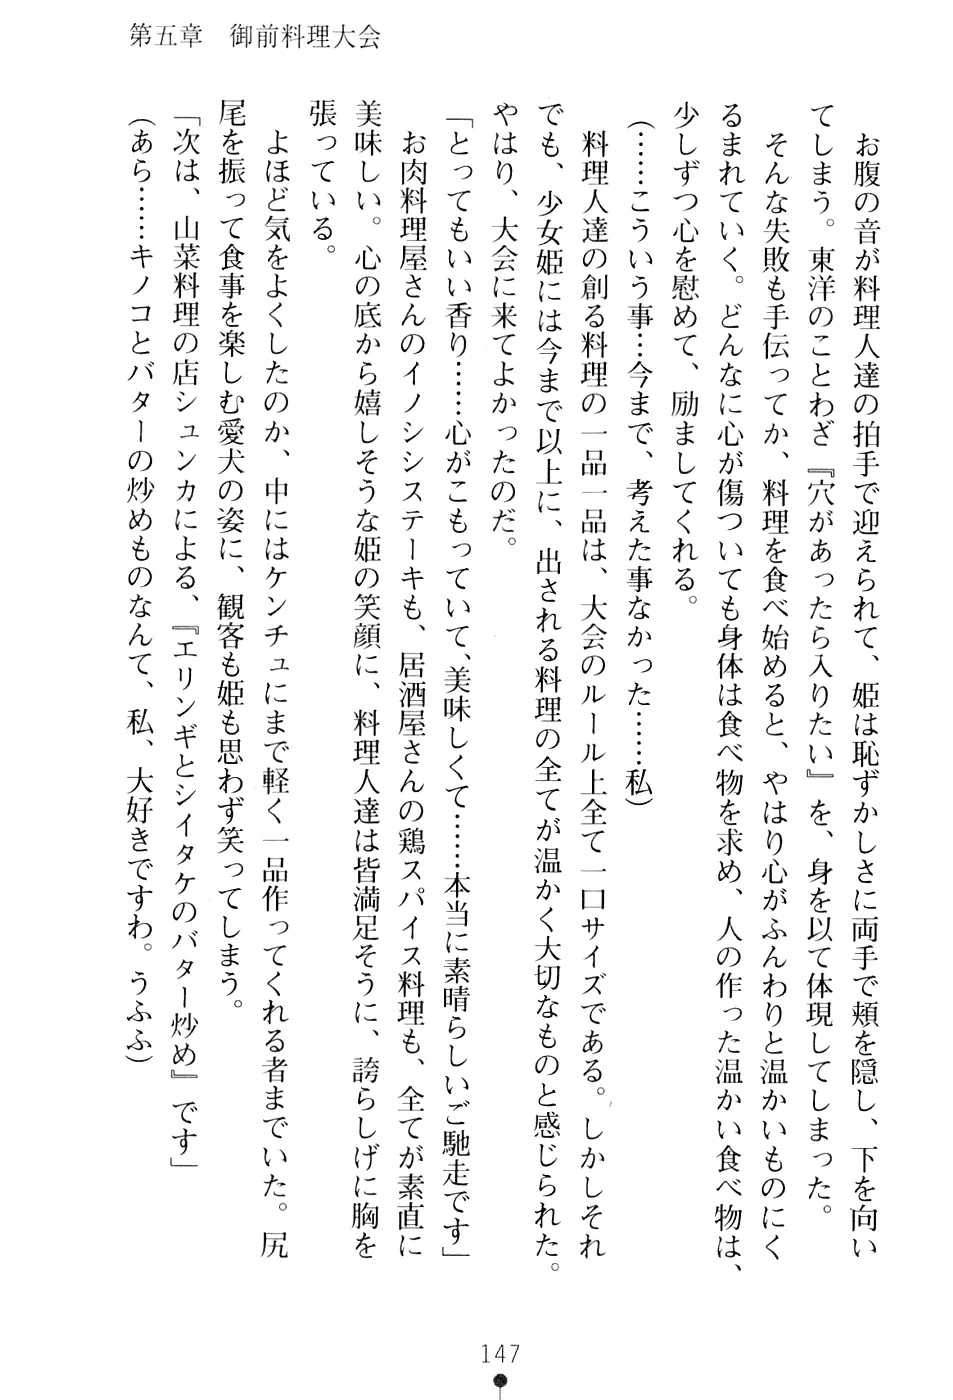 第五章　御前料理大会
　お腹の音が料理人達の拍手で迎えられて、姫は恥ずかしさに両手で頬を隠し、下を向い
てしまう。東洋のことわざ『穴があったら入りたい』を、身を以て体現してしまった。
　そんな失敗も手伝ってか、料理を食べ始めると、やはり心がふんわりと温かいものにく
るまれていく。どんなに心が傷ついても身体は食べ物を求め、人の作った温かい食べ物は、
少しずつ心を慰めて、励ましてくれる。
（……こういう事…今まで、考えた事なかった……私）
　料理人達の創る料理の一品一品は、大会のルール上全て一口サイズである。しかしそれ
でも、少女姫には今まで以上に、出される料理の全てが温かく大切なものと感じられた。
やはり、大会に来てよかったのだ。
「とってもいい香り……心がこもっていて、美味しくて……本当に素晴らしいご馳走です」
　お肉料理屋さんのイノシシステーキも、居酒屋さんの鶏スパイス料理も、全てが素直に
美味しい。心の底から嬉しそうな姫の笑顔に、料理人達は皆満足そうに、誇らしげに胸を
張っている。
　よほど気をよくしたのか、中にはケンチュにまで軽く一品作ってくれる者までいた。尻
尾を振って食事を楽しむ愛犬の姿に、観客も姫も思わず笑ってしまう。
「次は、山菜料理の店シュンカによる、『エリンギとシイタケのバター炒め』です」
（あら……キノコとバターの炒めものなんて、私、大好きですわ。うふふ）
147